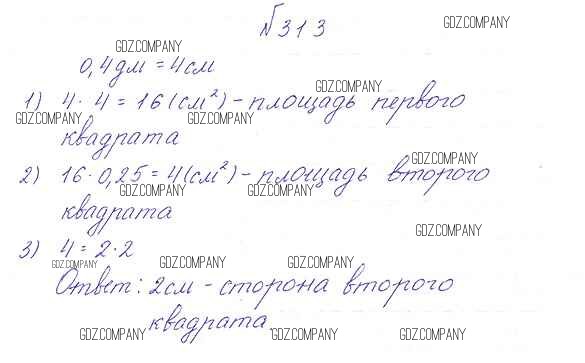 №313
GDZ.COMPANY
GDZ.COMPANY
0,4дм = 4см
GDZ.COMPANY
1) 4 · 4 = 16 (см²) - площадь первого
GDZ.COMPANY GDZ.COMPANY
квадрата
GDZ.COMPANY
2) 16 · 0,25 = 4(см²) - площадь второго
GDZ.COMPANY GDZ.COMPANY
квадрата
GDZ.COMPANY
3) 4 = 2 · 2
GDZ.COMPANY GDZ.COMPANY GDZ.COMPANY
Ответ: 2см - сторона второго
квадрата.
GDZ.COMPANY GDZ.COMPANY GDZ.COMPANY